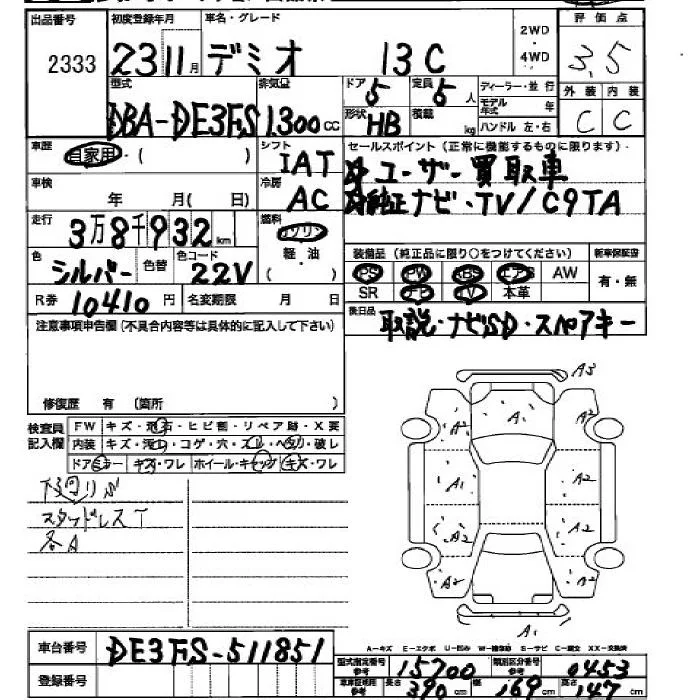 出品番号 初度登録年月 車名・グレード 2WD 評価点
2333 23 11月 デミオ 13C 4WD 3.5
型式 排気量 ドア 定員 ディーラー・並行 外装 内装
DBA-DE3FS 1300cc 5 5人 モデル年式 年 C C
形状 HB 積載 kg ハンドル 左・右
車歴 自家用・( ) シフト IAT セールスポイント(正常に機能するものに限ります)
ユーザー買取車
車検 年 月( 日) 冷房 AC 純正ナビ・TV/C9TA
走行 3万8千932km 燃料 ガソリン
軽・油
( )
装備品(純正品に限り○をつけてください) 新車保証書
色 シルバー 色替 色コード 22V PS PW ABS エアB AW 有・無
SR ナビ TV 本革
R券 10410円 名変期限 月 日 後日品 取説・ナビSD・スペアキー
注意事項申告欄(不具合内容等は具体的に記入して下さい)
修復歴 有(箇所 )
検査員記入欄 FW キズ・飛石・ヒビ割・リペア跡・X要
内装 キズ・汚れ・コゲ・穴・スレ・ヘタリ・破レ
ドアミラー キズ・ワレ ホイール・キャップ キズ・ワレ
A3
A2 A A2
A1 A2
A2 A2
A2 A2
A1
スタッドレスT
各A
A-キズ E-エクボ U-凹み W-補修跡 S-サビ C-腐食 XX-交換済
車台番号 DE3FS-511851
型式指定番号 参考 15700 類別区分番号 参考 0453
登録番号 長さ 390cm 幅 169cm 高さ 147cm